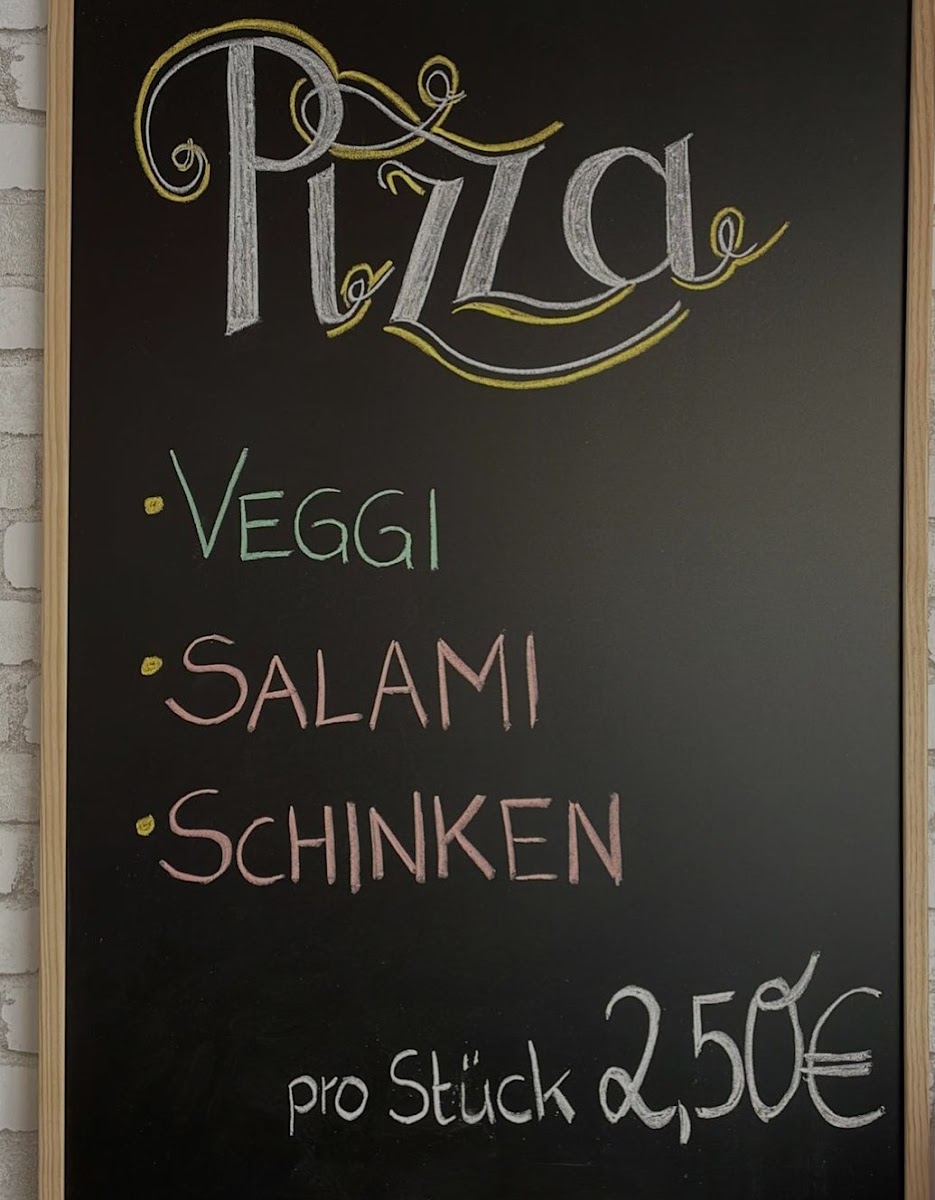 Pizza
• VEGGI
• SALAMI
• SCHINKEN
pro Stück 2,50€